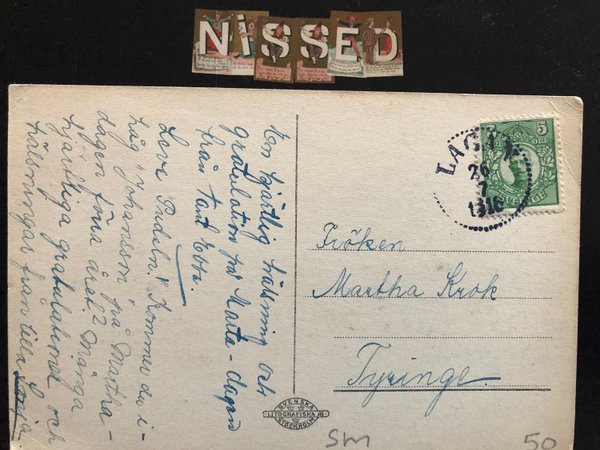 NiSSED
En hjärtlig hälsning och
gratulation på Marta-dagen
från tant Ebba.
Love Pudeln! Kommer du i-
håg "Johansson på Martha-
dagen förra året? Många
hjärtliga gratulationer och
hälsningar från lilla Sonja
5
ÖRE
SVERIGE
LAGAN
26
7
1916
Fröken
Martha Krok
Tyringe
SVENSKA
LITOGRAFISKA AB
STOCKHOLM
SM
50